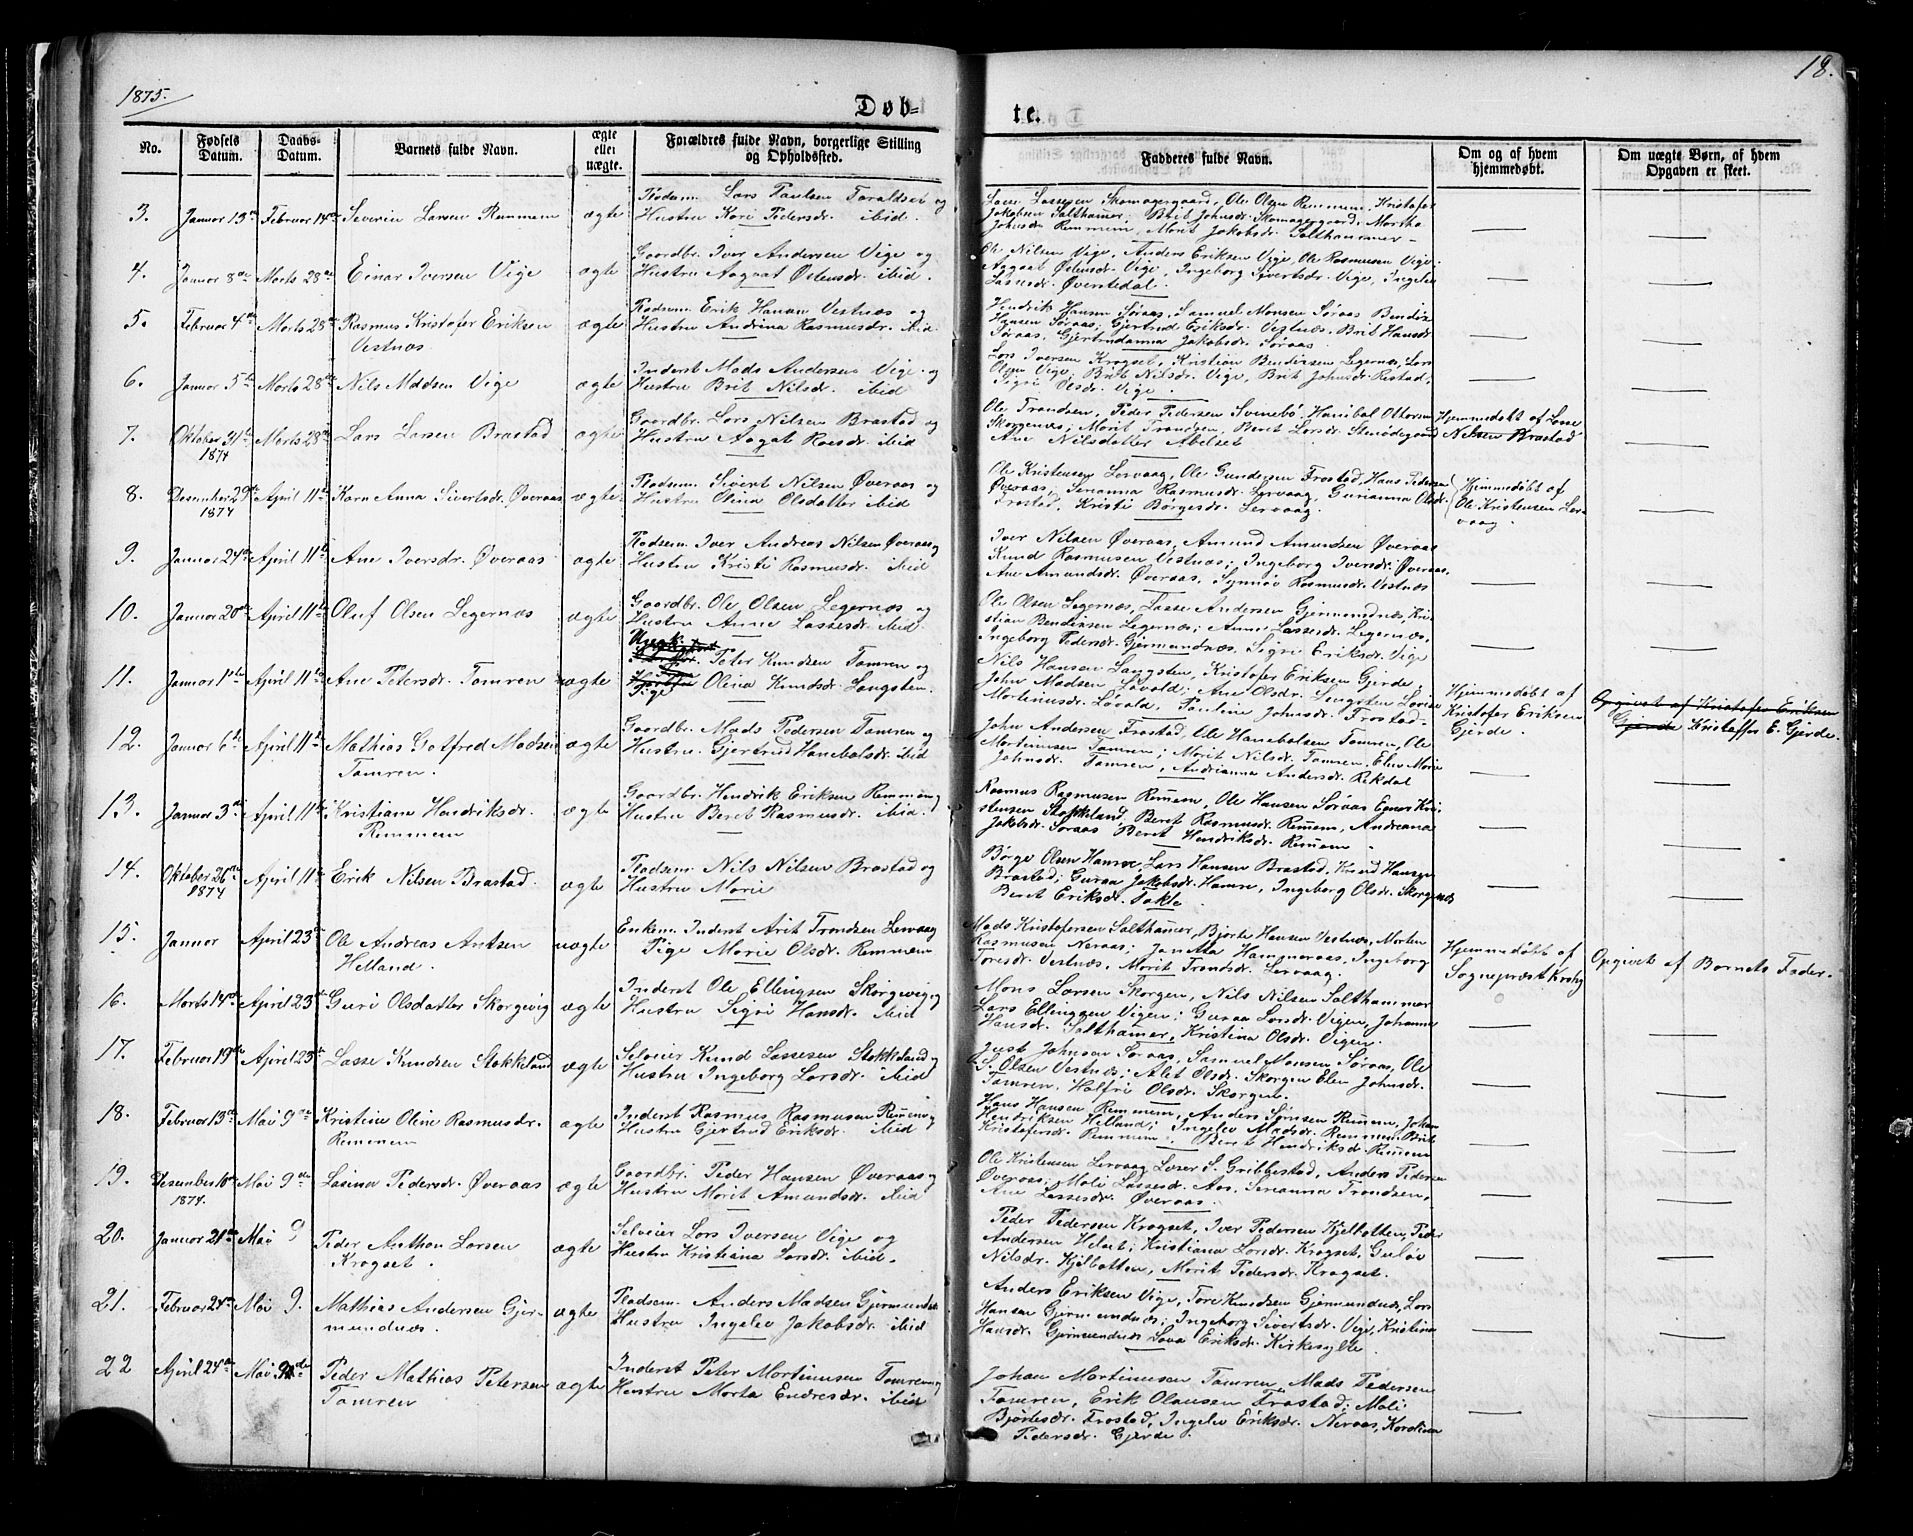 1875.
18.
Døb-
te.
No.
Fødsels Datum.
Daabs-Datum.
Barnets fulde Navn.
ægte eller uægte.
Forældres fulde Navn, borgerlige Stilling og Opholdssted.
Fadderes fulde Navn.
Om og af hvem hjemmedøbt.
Om uægte Børn, af hvem Opgaven er skeet.
3. Januar 13de Februar 14de Severin Larsen Remmem ægte
Pladsm. Lars Paulsen Taraldset og
Hustru Kari Pedersdr. ibid.
Lasse Lassesen Skomagergaard, Ole Olsen Remmem, Kristofer
Jakobsen Salthamer, Brit Johnsdr. Skomagergaard, Martha
Johnsdr. Remmem, Marit Jakobsdr. Salthammer
4. Januar 8de Marts 28de Einar Iversen Vige ægte
Gaardbr. Iver Andersen Vige og
Hustru Aagaat Østensdr. ibid.
Ole Nilsen Vige, Anders Eriksen Vige, Ole Rasmusen Vige
Aagaat Østensdr. Vige, Ingeborg Sivertsdr. Vige, Ingelev
Lassesdr. Øverstedal.
5. Februar 4de Marts 28de Rasmus Kristofer Eriksen
Vestnæs
ægte
Pladsm. Erik Hansen Vestnæs og
Hustru Andrina Rasmusdr. ibid.
Hendrik Hansen Søraas, Samuel Monsen Søraas Bendix
Hansen Søraas, Gjertrud Eriksdr. Vestnæs, Brit Hansdr.
Søraas, Gjertrudanna Jakobsdr. Søraas
6. Januar 5te Marts 28de Nils Madsen Vige ægte
Inderst Mads Andersen Vige og
Hustru Brit Nilsdr. ibid
Lars Iversen Krogset, Kristian Bendixsen Legernæs, Lars
Olsen Vige, Brit Nilsdr. Vige, Brit Johnsdr. Restad,
Sigri Olsdr. Vige
7. Oktober 31te Marts 28de Lars Larsen Brastad ægte
1874
Gaardbr. Lars Nilsen Brastad og
Hustru Aagat Roesdr. ibid
Ole Trondsen, Peder Pedersen Svinebø, Hanibal Ottersen
Skorgenæs; Marit Trondsen, Beret Larsdr. Stenødegaard
Ane Nilsdatter Abelset
Hjemmedøbt af Lasse
Nilsen Brastad
8. Desember 29de April 11te Karn Anna Sivertsdr. Øveraas ægte
1874
Pladsm. Sivert Nilsen Øveraas og
Hustru Olina Olsdatter ibid
Ole Kristensen Lervaag, Ole Gundersen Frostad, Hans Pedersen
Øveraas, Serianna Rasmusdr. Lervaag, Gurianna Olsdr.
Frostad, Kristi Børgesdr. Lervaag.
Hjemmedøbt af
Ole Kristensen Ler-
vaag.
9. Januar 24de April 11te Ane Iversdr. Øveraas ægte
Pladsem. Iver Andreas Nilsen Øveraas og
Hustru Kristi Rasmusdr. ibid
Iver Nilsen Øveraas, Amund Amundsen Øveraas
Knud Rasmusen Vestnæs; Ingeborg Iversdr. Øveraas,
Ane Amundsdr. Øveraas, Synnøv Rasmusdr. Vestnæs
10. Januar 20de April 11te Oluf Olsen Legernæs ægte
Gaardbr. Ole Olsen Legernæs og
Hustru Anne Lassesdr. ibid
Ole Olsen Legernæs, Lasse Andersen Gjermundnæs, Kri-
stian Bendixsen Legernæs; Anne Lassesdr. Legernæs,
Ingeborg Pedersdr. Gjermundnæs, Sigri Eriksdr. Vige
11. Januar 1ste April 11te Ane Petersdr. Tomren uægte
Peter Knudsen Tomren og
Pige Olina Knudsdr. Langsten.
Nils Hansen Langsten, Kristofer Eriksen Gjerde,
John Madsen Løvold; Ane Olsdr. Langsten Lovise
Martinusdr. Løvold, Pauline Johnsdr. Frostad
Hjemmedøbt af
Kristofer Eriksen
Gjerde.
Opgivet af Kristofer Eriksen
Gjerde Kristoffer E. Gjerde.
12. Januar 6te April 11te Mathias Gotfred Madsen
Tomren.
ægte
Gaardbr. Mads Pedersen Tomren og
Hustru Gjertrud Hanebalsdr. ibid
John Andersen Frostad, Ole Hanebalsen Tomren, Ole
Mortenusen Tomren; Marit Nilsdr. Tomren, Elen Marie
Johnsdr. Tomren, Andrianna Andersdr. Rekdal
13. Januar 3de April 11te Kristiane Hendriksdr.
Remmem
ægte
Gaardbr. Hendrik Eriksen Remmem og
Hustru Beret Rasmusdr. ibid.
Rasmus Rasmusen Remem, Ole Hansen Søraas Egner Kri-
stensen Stokkeland, Beret Rasmusdr. Remem, Andreana
Jakobsdr. Søraas Beret Hendriksdr. Remem
14. Oktober 26de April 11te Erik Nilsen Brastad. ægte
1874
Pladsem. Nils Nilsen Brastad og
Hustru Marie
Børge Olsen Hamre, Lars Hansen Brastad, Knud Hansen
Brastad; Guraa Jakobsdr. Hamre, Ingeborg Olsdr. Skorgenæs
Beret Eriksdr. Tokle.
15. Januar April 23de Ole Andreas Antsen
Helland.
uægte
Enkem. Inderst Arit Trondsen Lervaag
Pige Marie Olsdr. Remmem
Mads Kristofersen Salthamer, Bjørte Hansen Vestnæs, Morten
Rasmusen Neraas; Janetta Hammeraas, Ingeborg
Toresdr. Vestnæs, Marit Trondsdr. Lervaag.
Hjemmedøbt af
Sogneprest Krohg
Opgivet af Barnets Fader.
16. Marts 14de April 23de Guri Olsdatter Skorgevig ægte
Inderst Ole Ellingsen Skorgevig og
Hustru Sigri Hansdr. ibid
Mons Larsen Skorgen, Nils Nilsen Salthammer
Lars Ellingsen Vigen; Guraa Larsdr. Vigen, Johanne
Hansdr. Salthamer, Kristina Olsdr. Vigen.
17. Februar 19de April 23de Lasse Knudsen Stokkeland ægte
Selveier Knud Lassesen Stokkeland og
Hustru Ingeborg Larsdr. ibid
Just Johnsen Søraas, Samuel Monsen Søraas, Ole
S. Olsen Vestnæs; Alet Olsdr. Skorgen Elen Johnsdr.
Tomren, Halfri Olsdr. Skorgen.
18. Februar 13de Mai 9de Kristine Oline Rasmusdr.
Remmem
ægte
Inderst Rasmus Rasmusen Remem og
Hustru Gjertrud Eriksdr. ibid
Hans Hansen Remmem, Anders Sørnsen Remem, Johan
Hendriksen Helland; Ingelev Madsdr. Remmem, Brit
Kristofersdr. Remmem, Beret Hendriksd. Remem
19. Desember 10de Mai 9de Lasina Pedersdr. Øveraas ægte
1874.
Gaardbr. Peder Hansen Øveraas og
Hustru Marit Amundsdr. ibid
Ole Kristensen Lervaag Lasse S. Gribbestad, Anders Pedersen
Øveraas; Mali Lassesdr. Aas, Serianna Trondsen,
Ane Lassesdr. Øveraas.
20. Januar 21de Mai 9 Peder Anthon Larsen
Krogset.
ægte
Selveier Lars Iversen Vige og
Hustru Kristiana Larsdr. ibid.
Peder Pedersen Krogset, Iver Pedersen Kjelbotten, Peder
Andersen Helset; Kristiana Larsdr. Krogset, Guløv
Nilsdr. Kjelbotten, Marit Pedersdr. Krogset.
21. Februar 24de Mai 9. Mathias Andersen Gjer-
mundnæs.
ægte
Pladsem. Anders Madsen Gjermundnæs
Hustru Ingelev Jakobsdr. ibid
Anders Eriksen Vige, Tore Knudsen Gjermundnæs, Lars
Hansen Gjermundnæs; Ingeborg Sivertsdr. Vige, Kristina
Hansdr. Gjermundnæs Lova Eriksdr. Kirkesylte.
22 April 24de Mai Peder Mathias Petersen
Tomren
ægte
Inderst Peter Mortinusen Tomren og
Hustru Marta Endresdr. ibid
Johan Mortinusen Tomren, Mads Pedersen
Tomren, Erik Olausen Frostad; Mali
Bjørtesdr. Frostad, Ingelev Eriksdr. Neraas, Karolina
Pedersdr. Gjerde.